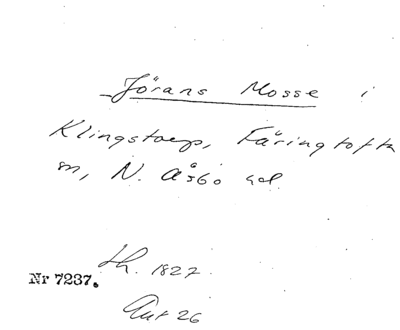 Jörans Mosse i
Klingstorp, Färingtofta
sn, N. Åsbo hd
th. 1827.
Nr 7237.
Aut 26